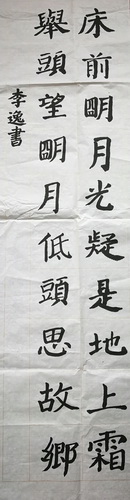 床前明月光疑是地上霜
舉頭望明月低頭思故鄉
李逸書